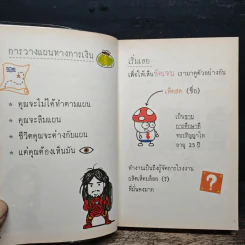 การวางแผนทางการเงิน
★ คุณจะไม่ได้ทำตามแผน
★ คุณจะลืมแผน
★ ชีวิตคุณจะต่างกับแผน
★ แต่คุณต้องเห็นมัน
เริ่มเลย
เพื่อให้เห็นชัดเจน เรามาดูตัวอย่างกัน
เห็ดสด (ชื่อ)
เป็นชาย
การศึกษาดี
จบปริญญาโท
อายุ 25 ปี
ทำงานเป็นถึงผู้จัดการโรงงาน
ผลิตเห็ดบล็อก (?)
ที่มั่นคงมาก
?